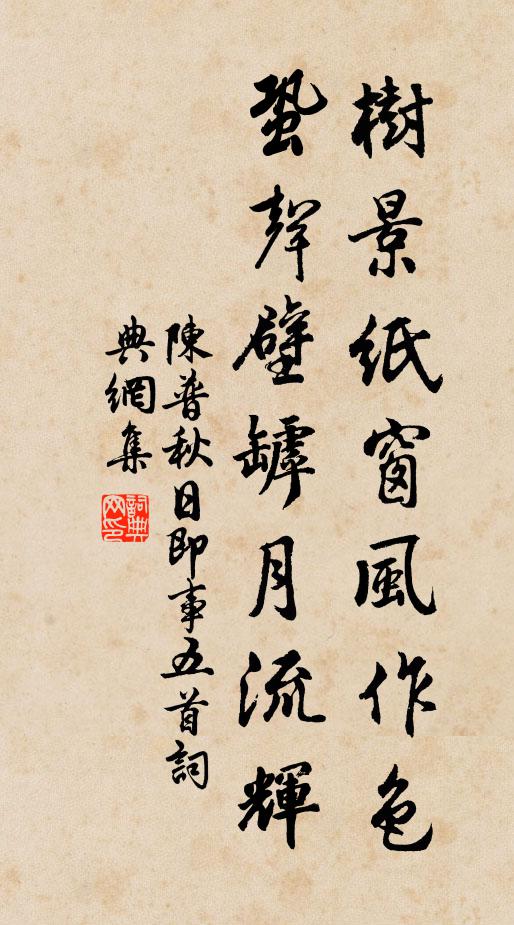 樹景紙窗風作色
蛩聲壁罅月流輝
陳普秋日即事五首詞
典網集
詞典網印